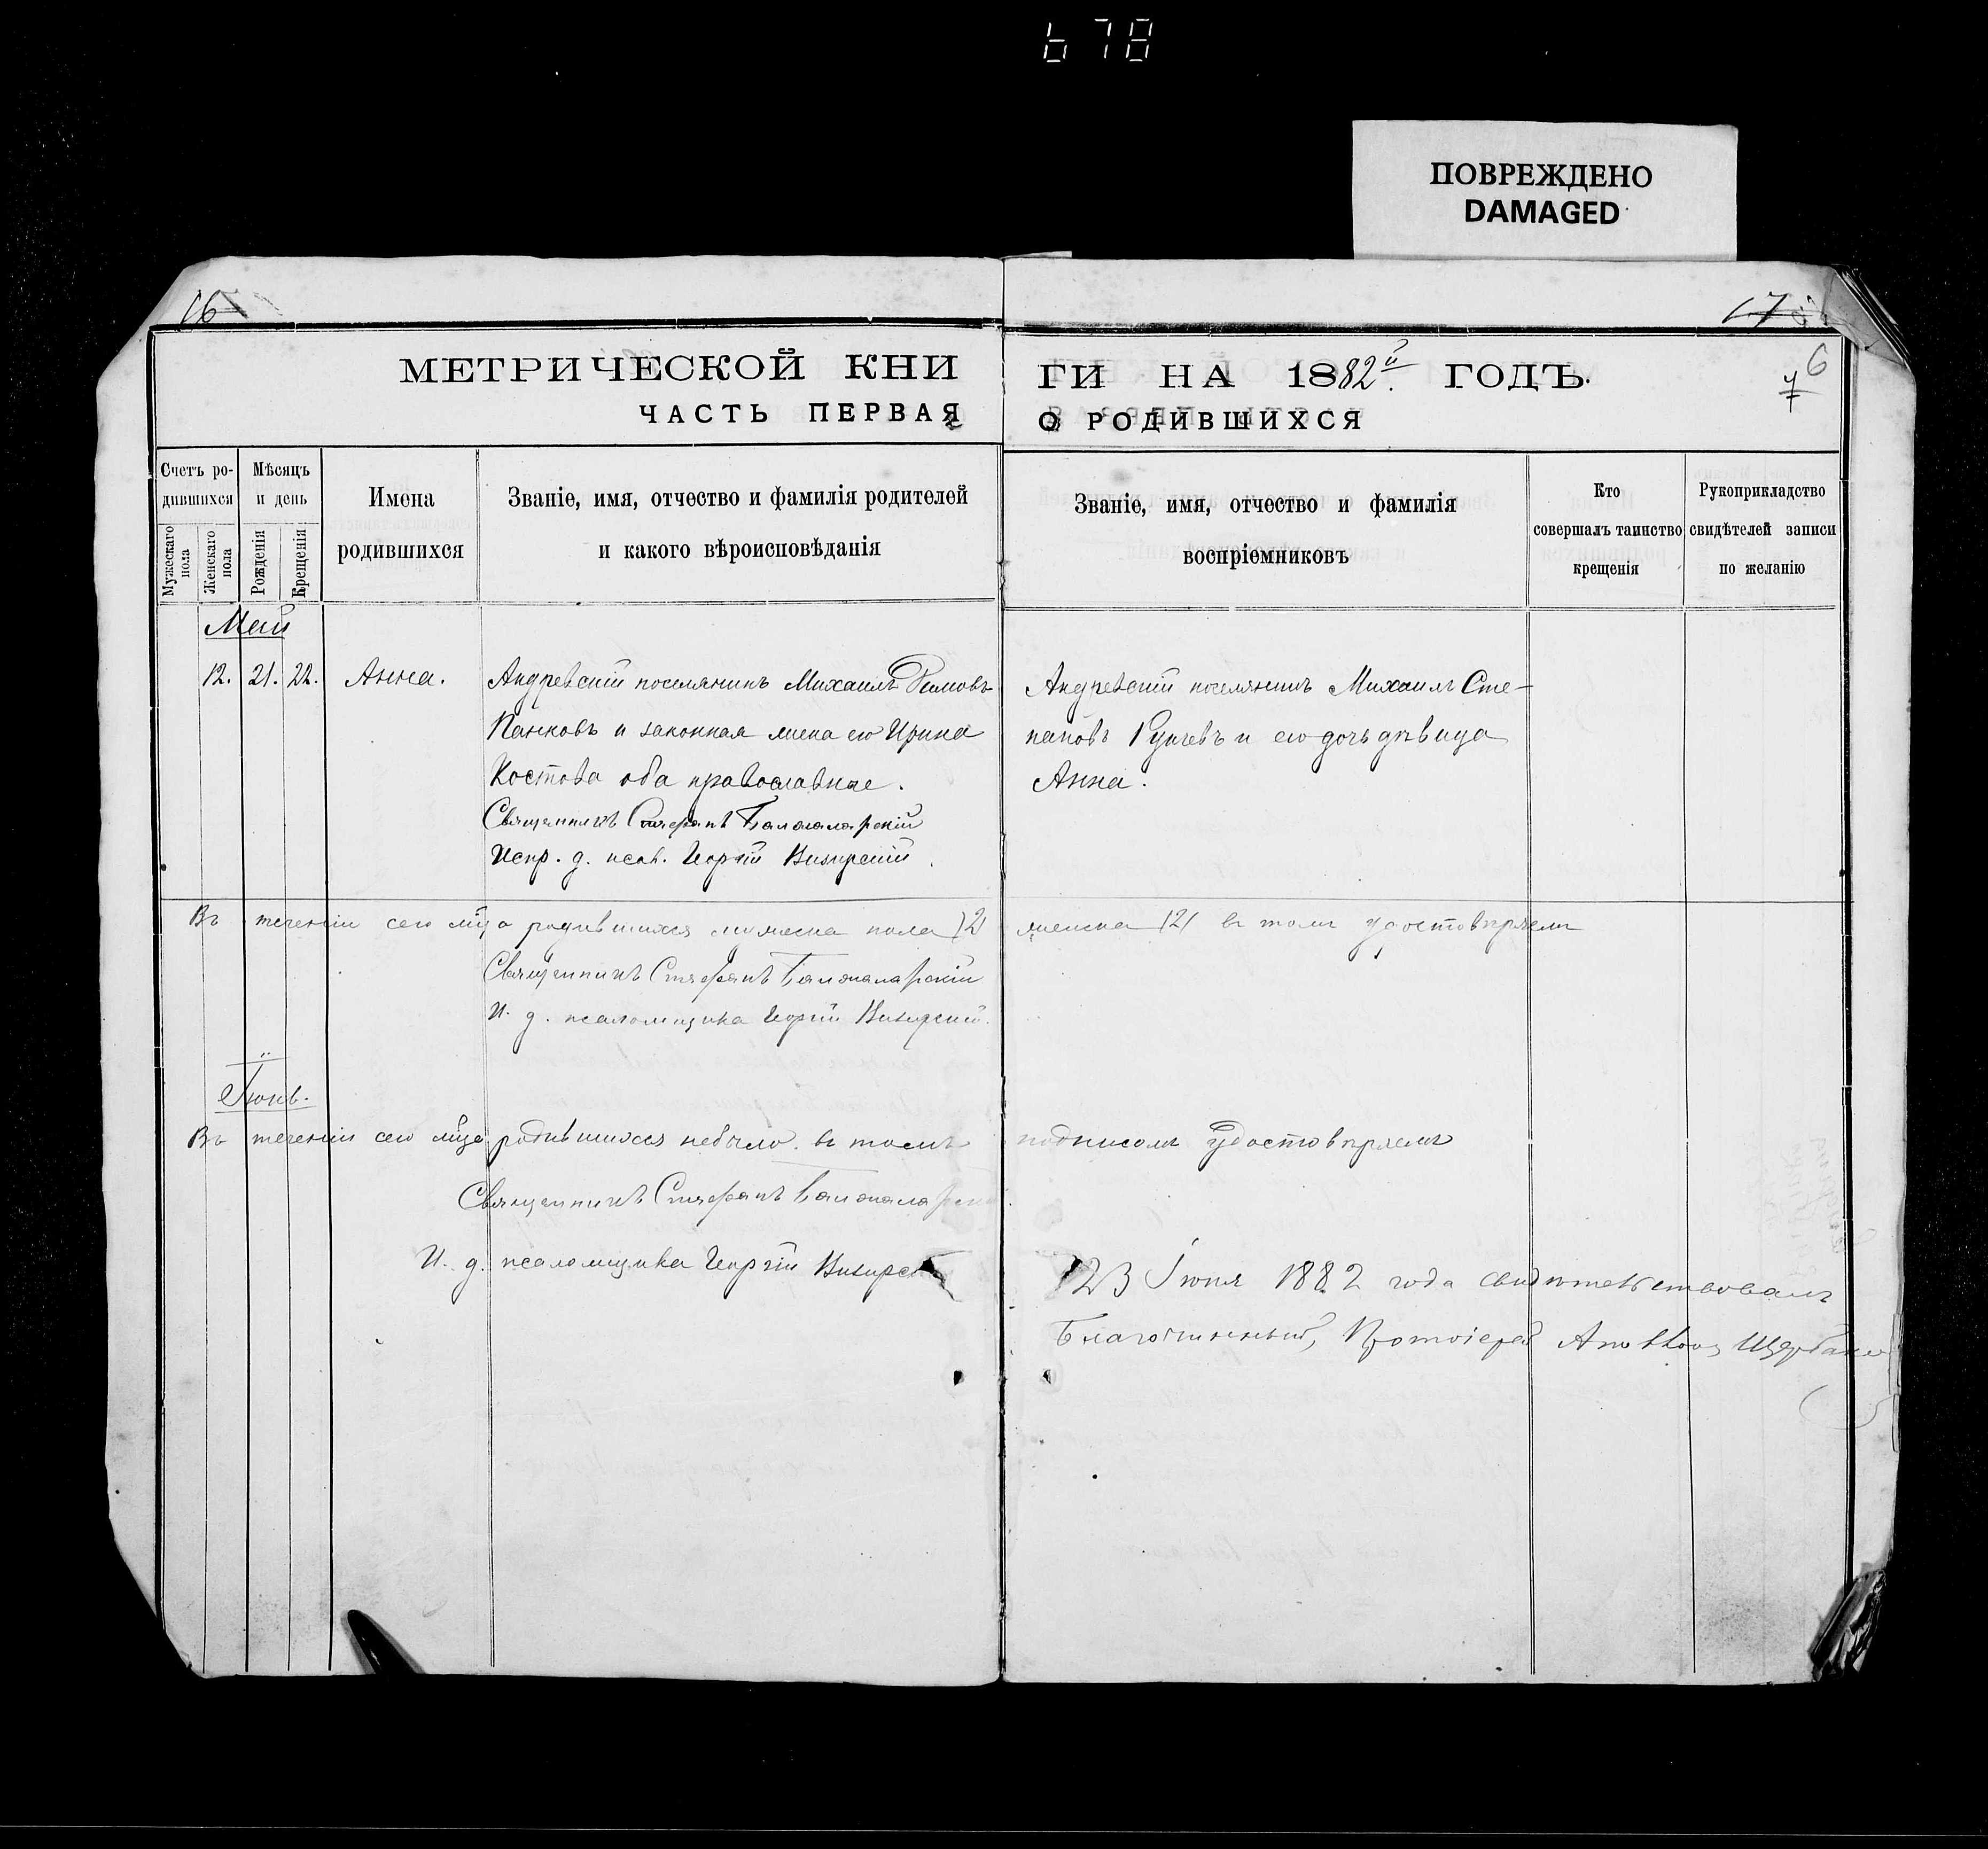 678
ПОВРЕЖДЕНО
DAMAGED
16
17
6
7
МЕТРИЧЕСКОЙ КНИ
ГИ НА 1882й ГОДЪ.
ЧАСТЬ ПЕРВАЯ
О РОДИВШИХСЯ
Счетъ ро-
дившихся
Мужескаго
пола
Женскаго
пола
Мѣсяцъ
и день
Рожденія
Крещенія
Имена
родившихся
Званіе, имя, отчество и фамилія родителей
и какого вѣроисповѣданія
Званіе, имя, отчество и фамилія
воспріемниковъ
Кто
совершалъ таинство
крещенія
Рукоприкладство
свидѣтелей записи
по желанію
Май
12. 21. 22. Анна.
Андревскій поселянинъ Михаилъ
Панковъ и законная жена его Ирина
Костова оба православные.
Священникъ Стефанъ
Испр. д. псал. Георгій Визирскій
Андревскій поселянинъ Михаилъ Сте-
пановъ и его дочь дѣвица
Анна.
Въ теченіи сего мца родившихся мужеска пола 12
женска 12 въ томъ удостовѣряемъ
Священникъ Стефанъ
И. д. псаломщика Георгій Визирскій.
Іюнь.
Въ теченіи сего мца родившихся небыло. въ томъ
подписомъ удостовѣряемъ
Священникъ Стефанъ
И. д. псаломщика Георгій
23 Іюня 1882 года свидѣтельствовалъ
Благочинный, Протоіерей